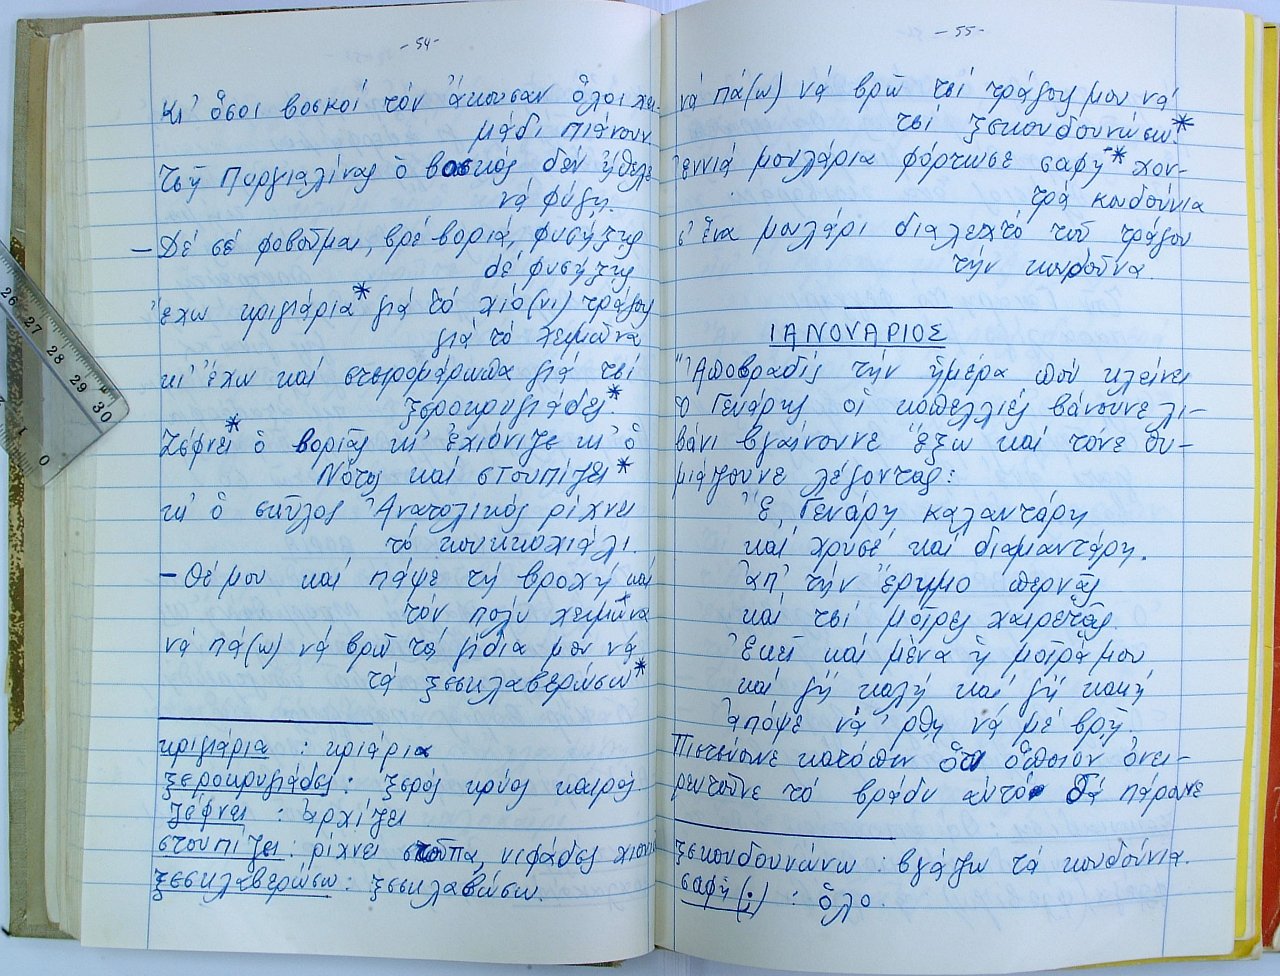 - 54 -
Κι' ὅσοι βοσκοί τόν ἄκουσαν ὅλοι χει-
μάδι πιάνουν
Τσῆ Παργιαλίνας ὁ βοσκός δέν ἤθελε
νά φύγη.
- Δέ σέ φοβοῦμαι, βρέ βοριά, φυσήξης
δέ φυσήξης
ἔχω κριγιάρια* γιά τό χιό(νι) τράγους
γιά τό χειμῶνα
κι' ἔχω καί στειρομάρωπα γιά τσί
ξεροκρυγιάδες.*
Ζέφνει* ὁ βοριᾶς κι' ἐχιόνιζε κι' ὁ
Νότος καί στουπίζει*
κι' ὁ σκύλος Ἀνατολικός ρίχνει
τό κουκκοχιάλι.
- Θέ μου καί πάψε τή βροχή καί
τόν πολύ χειμῶνα
νά πά(ω) νά βρῶ τά γίδια μου νά
τά ξεσκλαβερώσω*
κριγιάρια : κριάρια
ξεροκρυγιάδες : ξερός κρύος καιρός
ζέφνει : ἀρχίζει
στουπίζει : ρίχνει στοῦπα, νιφάδες χιονι
ξεσκλαβερώσω : ξεσκλαβώσω.
- 55 -
νά πά(ω) νά βρῶ τσί τράγους μου νά
τσί ξεκουδουνώσω*
ἐννιά μουλάρια φόρτωσε σαφή* χον-
τρά κουδούνια
σ' ἕνα μουλάρι διαλεχτό τοῦ τράγου
τήν κουδοῦνα.
ΙΑΝΟΥΑΡΙΟΣ
"Ἀποβραδίς τήν ἡμέρα πού κλείνει
ὁ Γενάρης οἱ κοπελλιές βάνουνε λι-
βάνι βγαίνουνε ἔξω καί τόνε θυ-
μιάζουνε λέγοντας:
Ἔ, Γενάρη καλαντάρη
καί χρυσέ καί διαμαντάρη.
Ἀπ' τήν ἔρημο περνᾶς
καί τσί μοῖρες χαιρετᾶς.
Ἐκεῖ καί μένα ἡ μοῖρα μου
καί γή καλή καί γή κακή
ἀπόψε νά 'ρθη νά μέ βρῆ.
Πιστεύουνε κατόπιν ὅτι ὅποιον ὀνει-
ρευτοῦνε τό βράδυ αὐτό θά πάρουνε
ξεκουδουνώνω : βγάζω τά κουδούνια.
σαφή (;) : ὅλο.